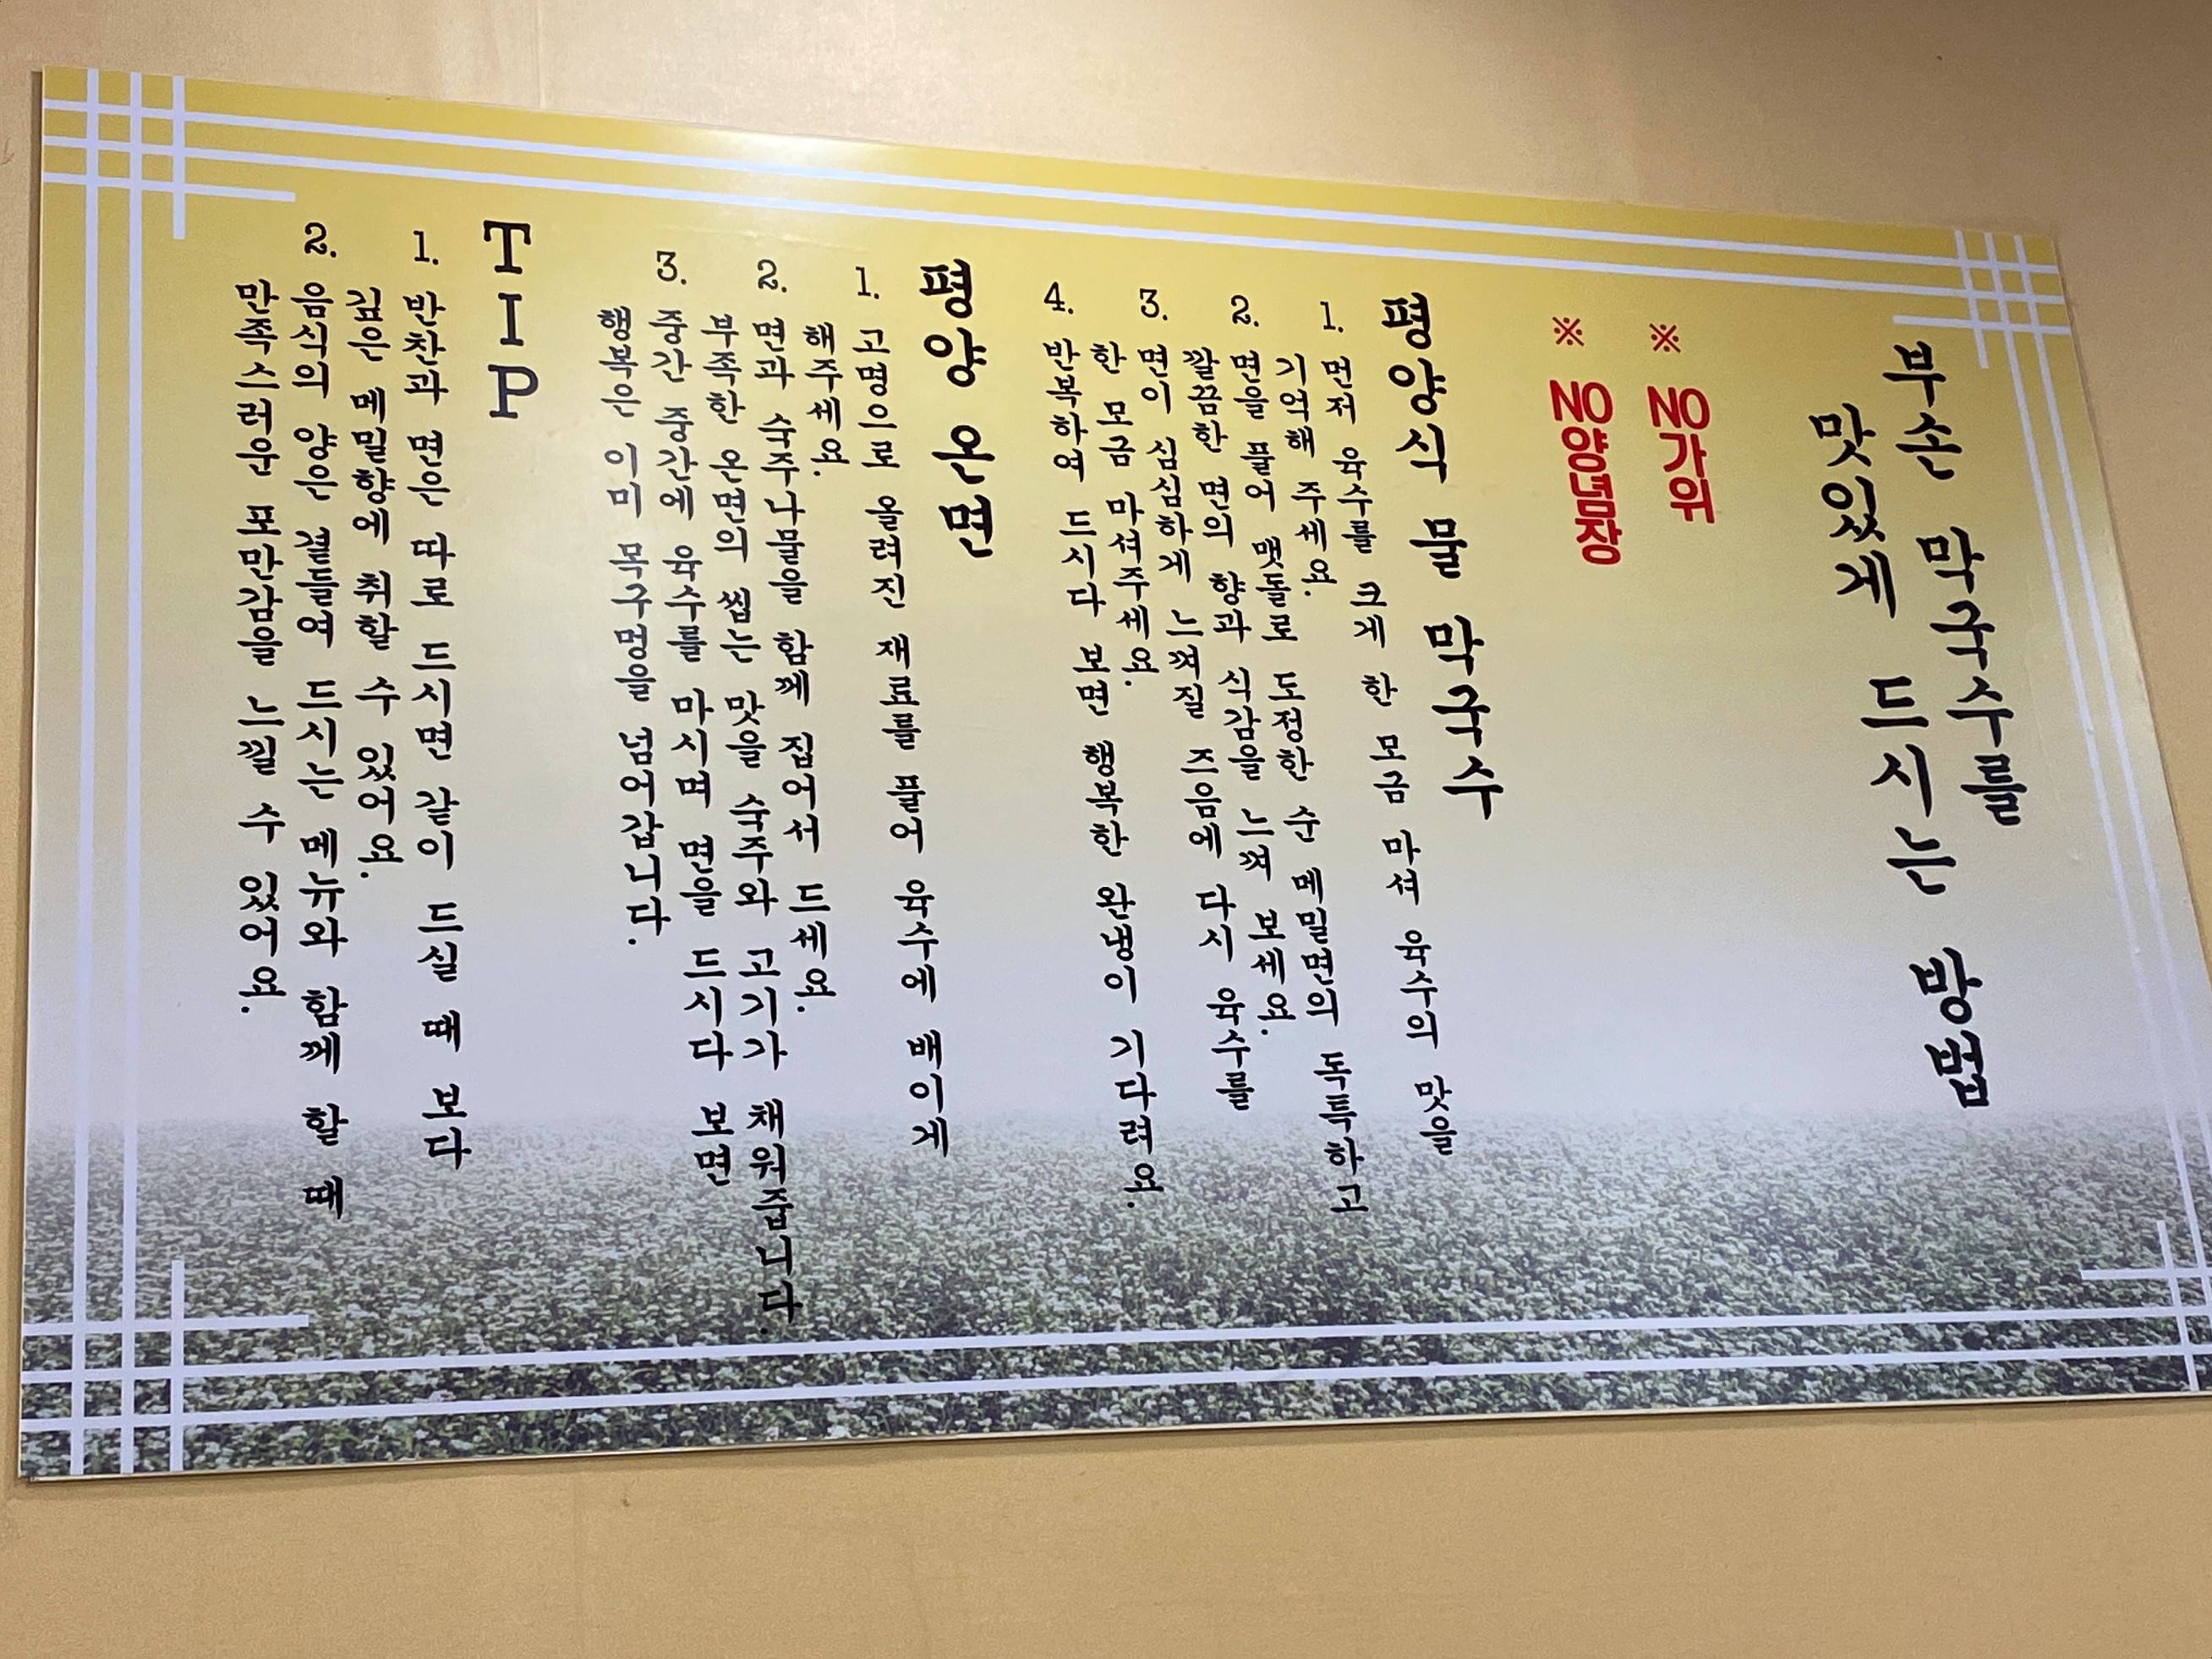 부손 막국수를
맛있게 드시는 방법
※ NO가위
※ NO양념장
평양식 물 막국수
1. 먼저 육수를 크게 한 모금 마셔 육수의 맛을
기억해 주세요.
2. 면을 풀어 맷돌로 도정한 순 메밀면의 독특하고
깔끔한 면의 향과 식감을 느껴 보세요.
3. 면이 심심하게 느껴질 즈음에 다시 육수를
한 모금 마셔주세요.
4. 반복하여 드시다 보면 행복한 완냉이 기다려요.
평양 온면
1. 고명으로 올려진 재료를 풀어 육수에 배이게
해주세요.
2. 면과 숙주나물을 함께 집어서 드세요.
부족한 온면의 씹는 맛을 숙주와 고기가 채워줍니다.
3. 중간 중간에 육수를 마시며 면을 드시다 보면
행복은 이미 목구멍을 넘어갑니다.
TIP
1. 반찬과 면은 따로 드시면 같이 드실 때 보다
깊은 메밀향에 취할 수 있어요.
2. 음식의 양은 곁들여 드시는 메뉴와 함께 할 때
만족스러운 포만감을 느낄 수 있어요.